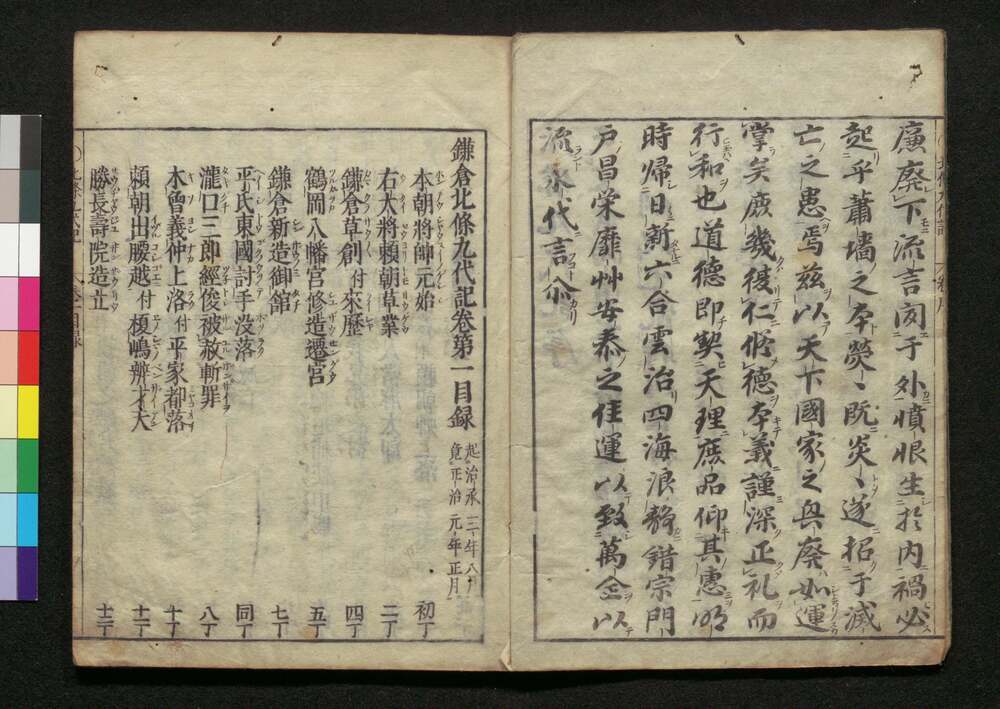 廣廢下流言閧于外憤恨生於内禍必
起乎蕭墻之本熒〻既炎〻遂招于滅
亡之患焉茲以天下國家之興廢如運
掌矣庶幾復仁脩德本義謹深正礼而
行和也道德即契天理庶品仰其惠明
時帰日新六合雲治四海浪静錯宗門
戸昌栄靡艸安泰之佳運以致萬念以
流永代言尒
鎌倉北條九代記卷第一目録 起治承三年八月 竟正治元年正月
本朝將帥元始 初丁
右大將頼朝草業 二丁
鎌倉草創付來歴 四丁
鶴岡八幡宮修造遷宮 五丁
鎌倉新造御館 七丁
平氏東國討手没落 同丁
瀧口三郎經俊被赦斬罪 八丁
木曾義仲上洛付平家都落 十丁
頼朝出腰越付榎嶋辨才天 十二丁
勝長壽院造立 十三丁